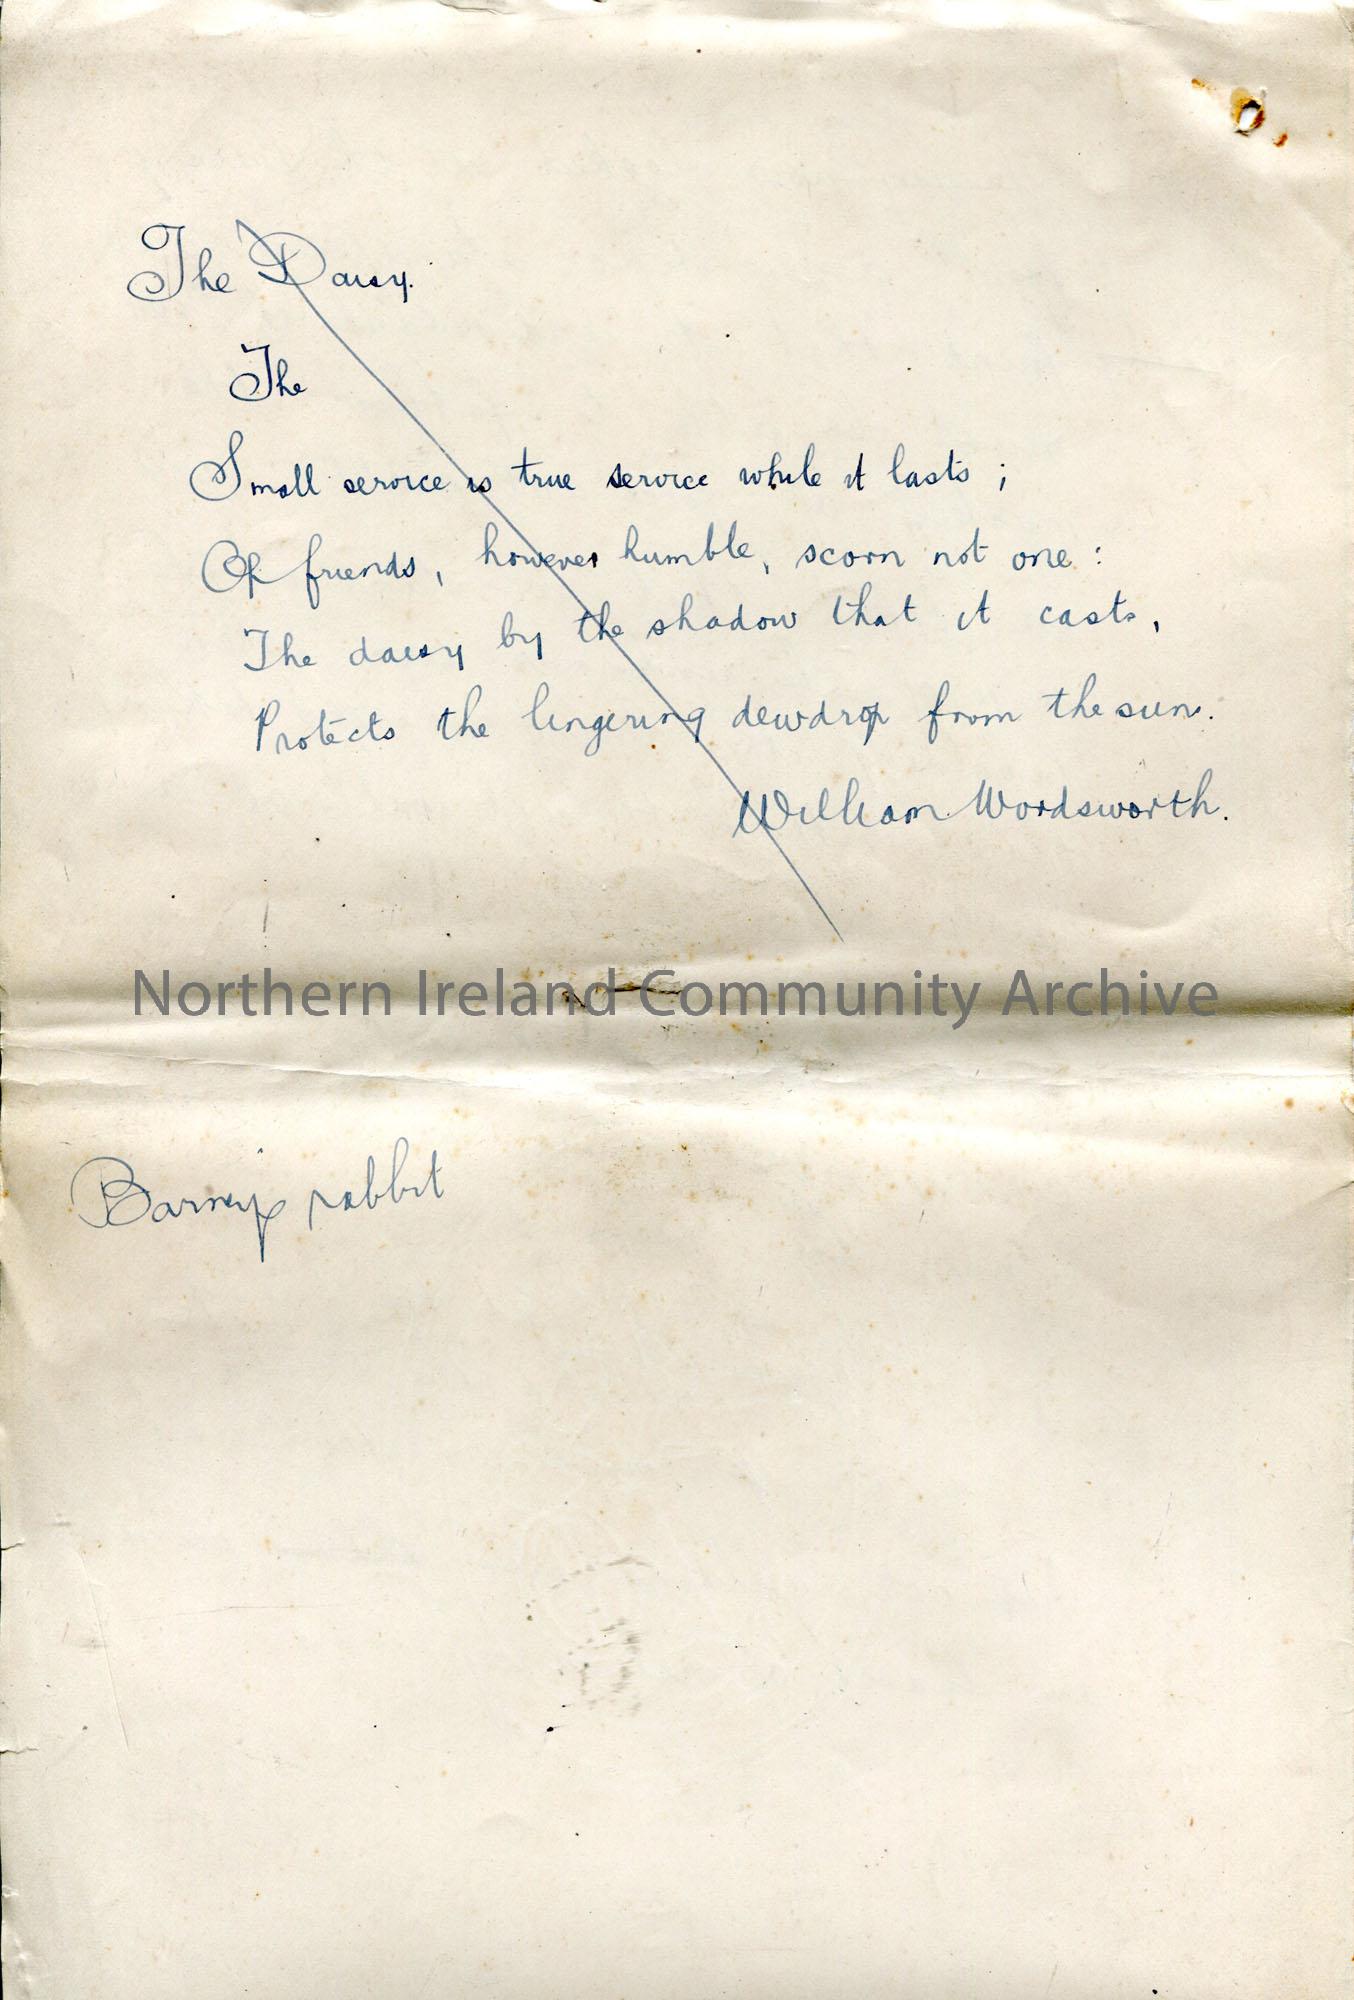 The Daisy.
The
Small service is true service while it lasts ;
Of friends, however humble, scorn not one :
The daisy by the shadow that it casts,
Protects the lingering dewdrop from the sun.
William Wordsworth.
Northern Ireland Community Archive
Barney rabbit